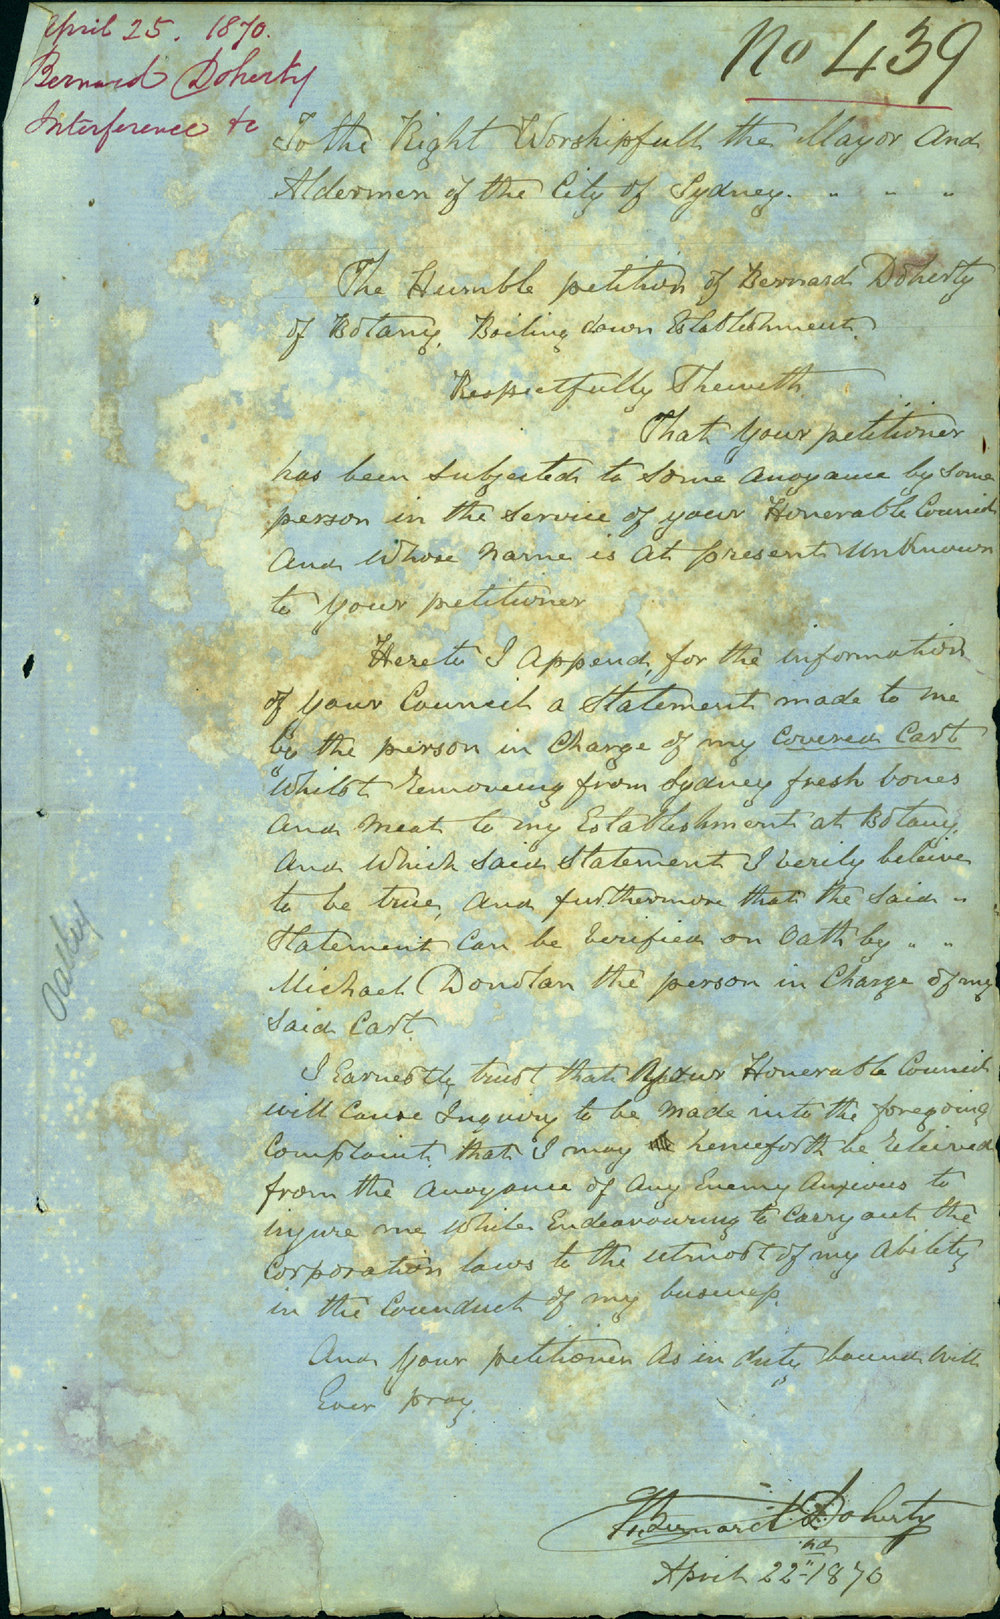 April 25. 1870.
Bernard Doherty
Interference &c
No 439
To the Right Worshipfull the Mayor and
Aldermen of the City of Sydney. " " "
The Humble petition of Bernard Doherty
of Botany, Boiling down Establishment.
Respectfully Sheweth
That your petitioner
has been subjected to some anoyance by some
person in the service of your Honerable Council
and whose name is at present unknown
to your petitioner
Hereto I append, for the information
of your Council a statement made to me
by the person in Charge of my Covered Cart
"whilst removeing from Sydney fresh bones
and meat to my Establishment at Botany,
and which said statement I verily beleive
to be true, and furthermore that the said "
Statement can be verified on Oath by " "
Michael Donolan the person in Charge of my
said Cart.
I Earnestly trust that your Honerable Council
will Cause Inquiry to be made into the foregoing
Complaint, that I may henceforth be releived
from the anoyance of any Enemy anxious to
injure me while Endeavouring to Carry out the
Corporation laws to the utmost of my Ability
in the Counduct of my business.
And your petitioner as in duty bound will
Ever pray.
Bernard Doherty
April 22nd 1870
Oatley